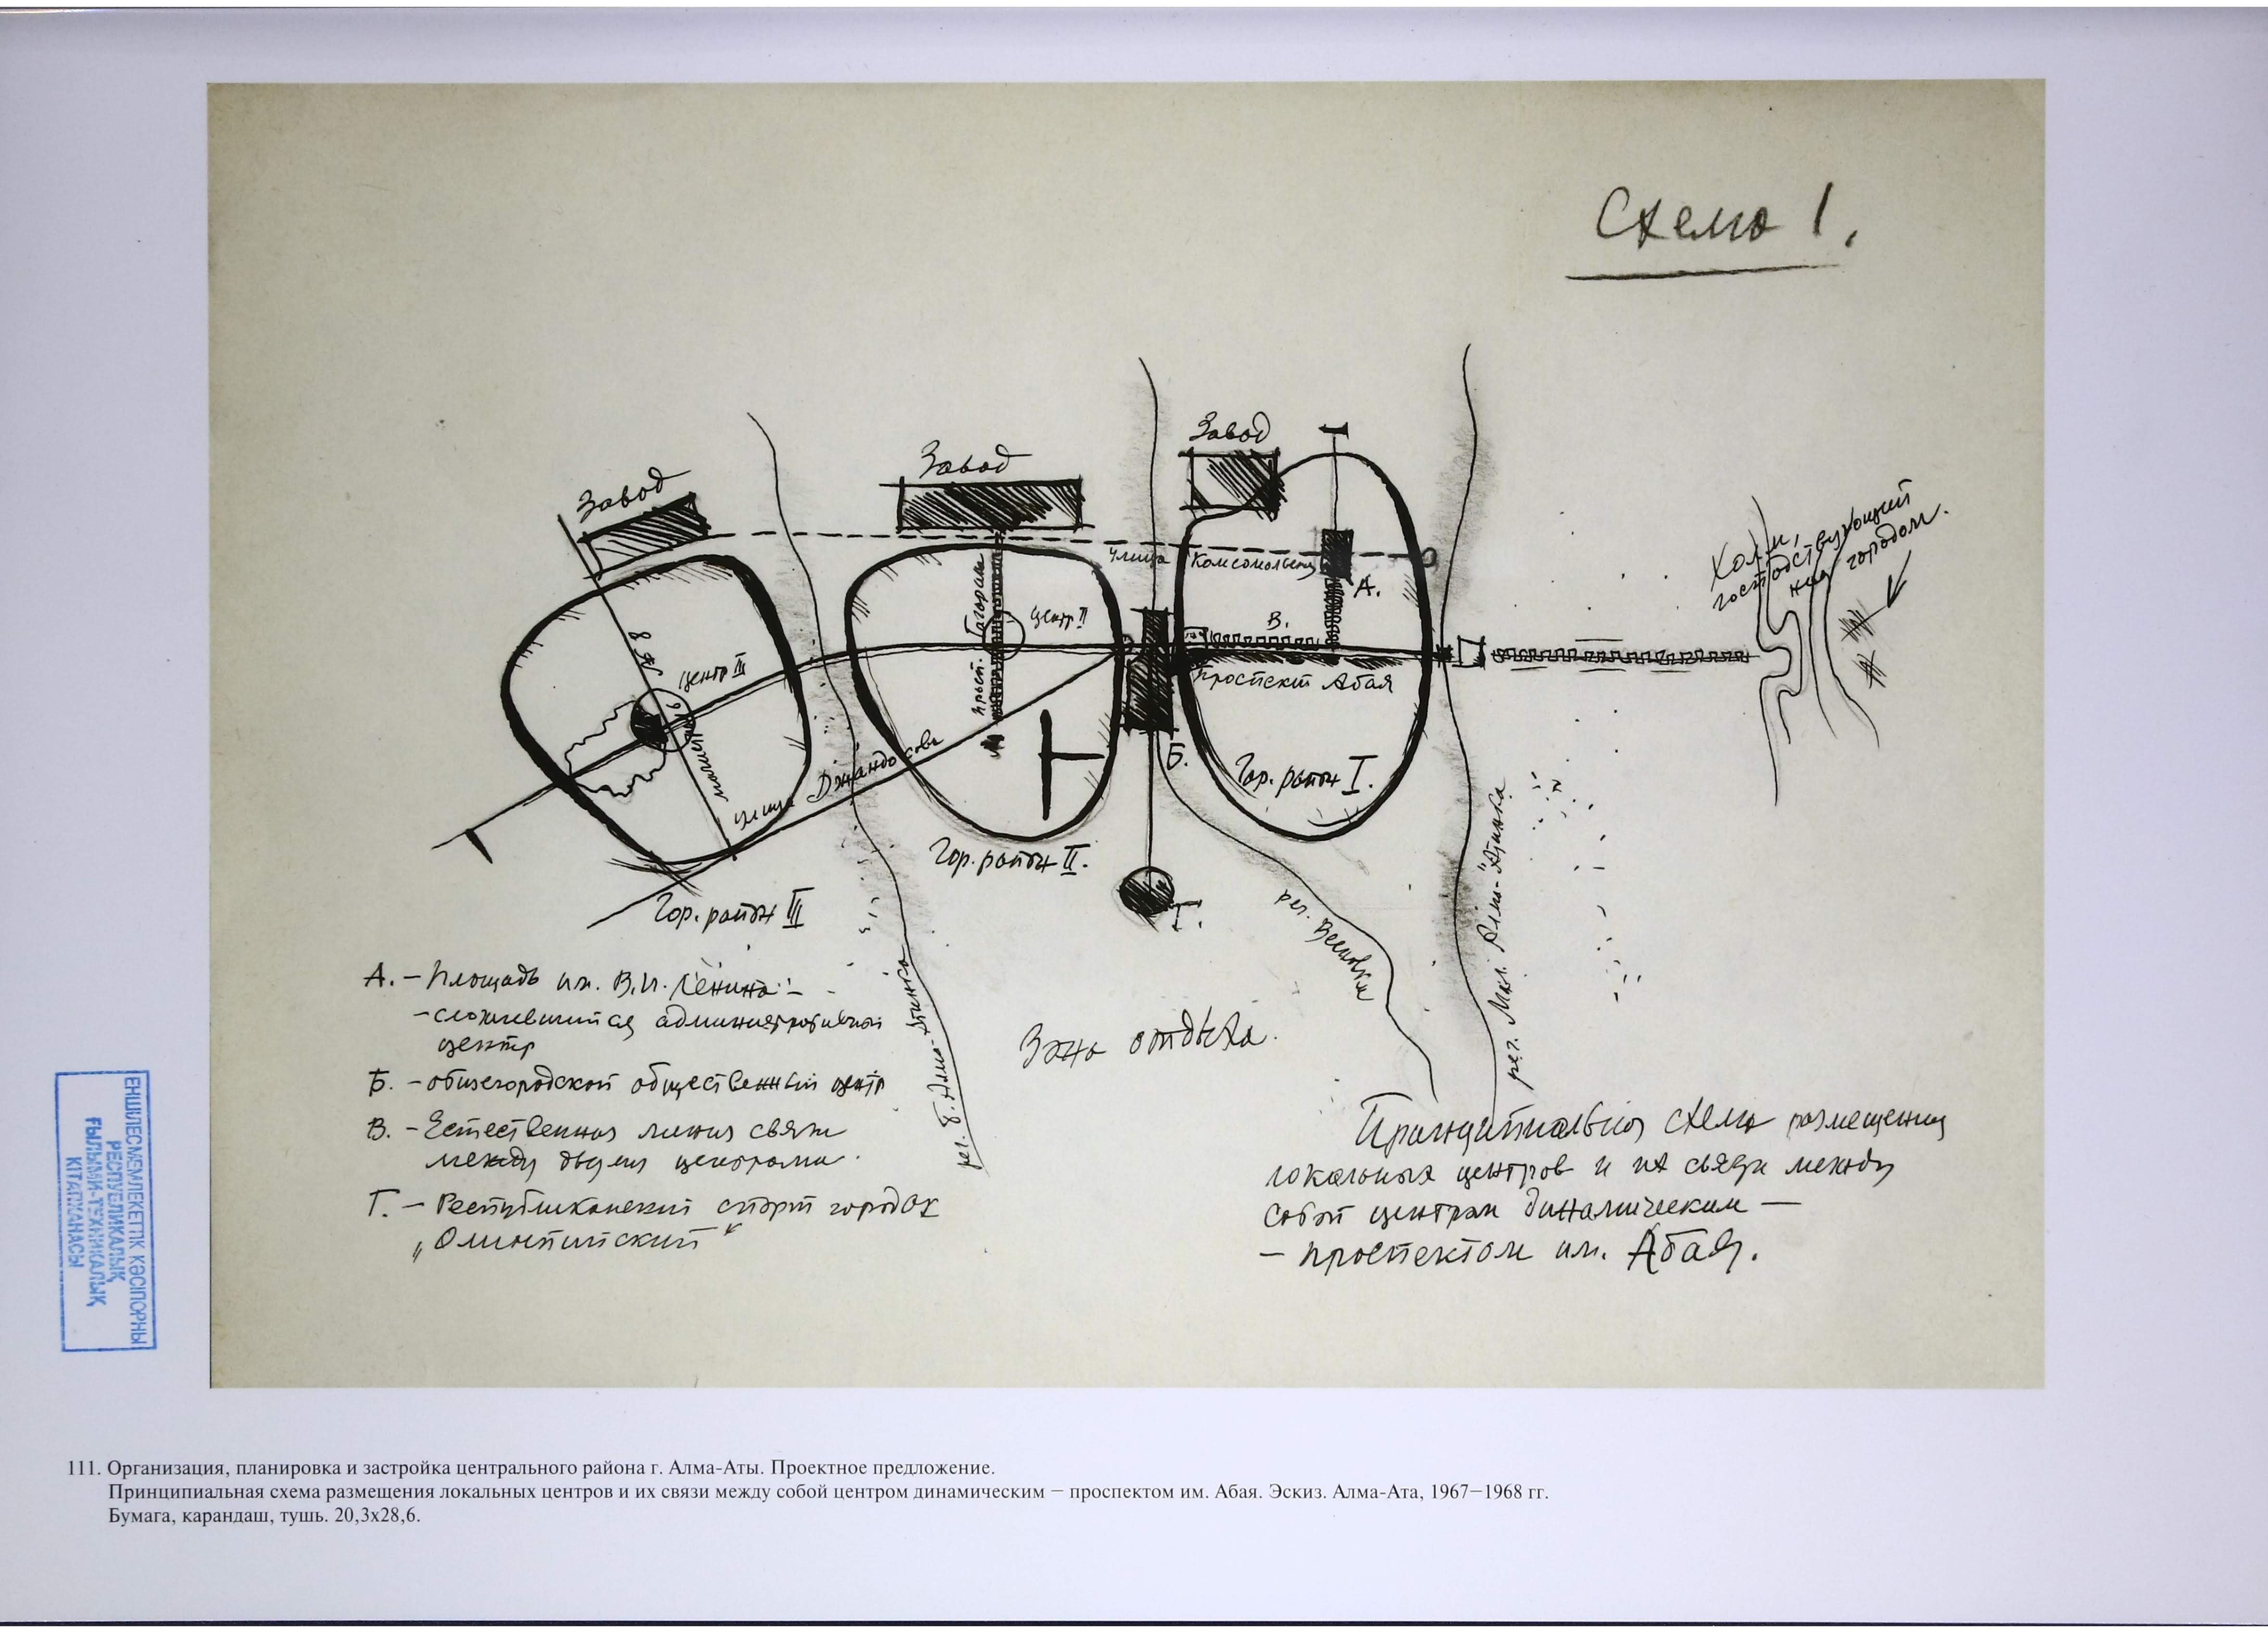 Схема 1.
Завод
Завод
Завод
Холм,
господствующий
над городом.
улица Комсомольская
А.
В.
просп. Гагарина
Центр II
Центр III
Проспект Абая
Б.
улица Джандосова
Гор. район I.
Гор. район II.
Гор. район III
Г.
рег. Весновка
рег. Мал. Алма-Атинка
рег. Б. Алма-Атинка
Зона отдыха.
А. – Площадь им. В.И. Ленина –
– сложившийся административный
центр
Б. – общегородской общественный центр
В. – Естественная линия связи
между двумя центрами.
Г. – Республиканский спорт городок
„Олимпийский"
Принципиальная схема размещения
локальных центров и их связи между
собой центром динамическим –
– проспектом им. Абая.
ЕНШІЛЕСМЕМЛЕКЕТТІК КӘСІПОРНЫ
РЕСПУБЛИКАЛЫҚ
ҒЫЛЫМИ-ТЕХНИКАЛЫҚ
КІТАПХАНАСЫ
111. Организация, планировка и застройка центрального района г. Алма-Аты. Проектное предложение.
Принципиальная схема размещения локальных центров и их связи между собой центром динамическим – проспектом им. Абая. Эскиз. Алма-Ата, 1967–1968 гг.
Бумага, карандаш, тушь. 20,3х28,6.